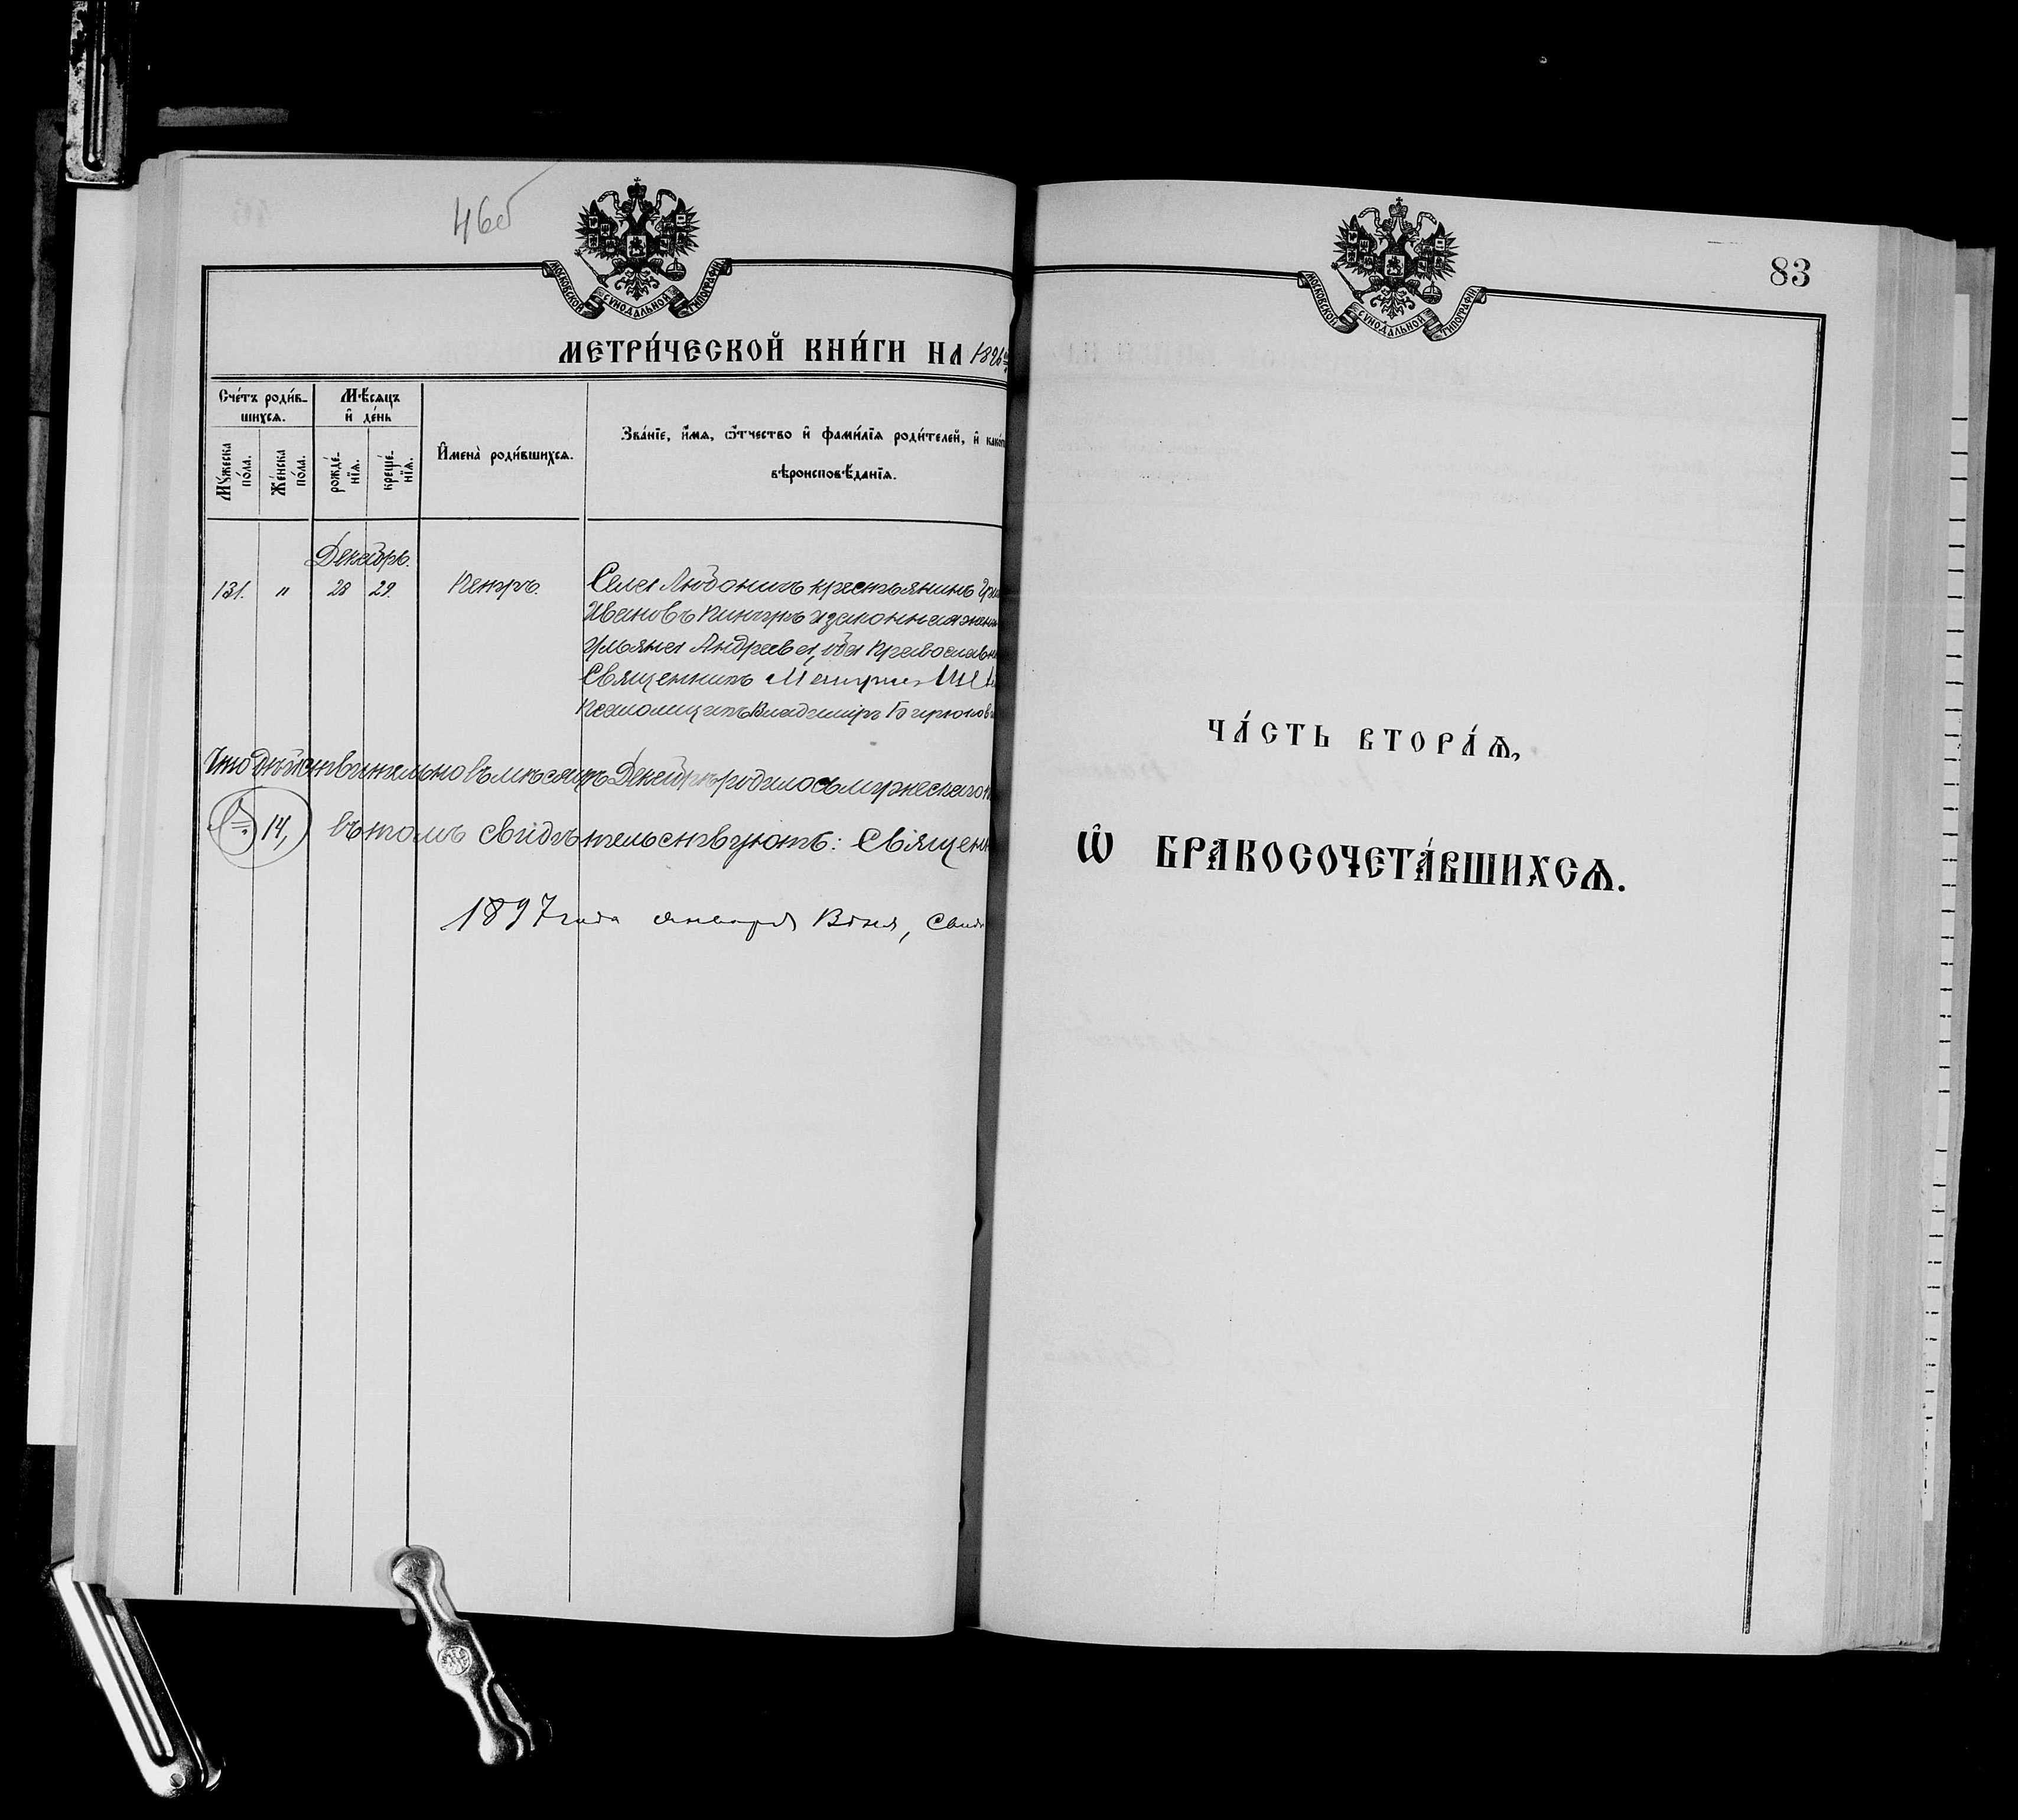 46об
МОСКОВСКОЙ СѴНОДАЛЬНОЙ ТИПОГРАФІИ
МЕТРИ́ЧЕСКОЙ КНИ́ГИ НА 1896
Сче́тъ роди́в-
шихсѧ.
Мѣ́сѧцъ
и҆ де́нь
И҆мена̀ роди́вшихсѧ.
Зва́нїе, и҆́мѧ, ѻ҆́тчество и҆ фами́лїѧ роди́телей, и҆ како́гѡ
вѣроисповѣ́данїѧ.
Мꙋ́жеска
по́ла.
Же́нска
по́ла.
рожде́-
нїѧ.
креще́-
нїѧ.
Декабрь.
131. " 28 29. Петръ. Села крестьянинъ
Ивановъ и законная жена
Ульяна Андреева, оба православн
Священникъ
Псаломщикъ Владиміръ
Что дѣйствительно въ мѣсяцѣ Декабрѣ родилось мужескаго п
14, въ томъ свидѣтельствуютъ: Священн
1897 года января дня,
83
МОСКОВСКОЙ СѴНОДАЛЬНОЙ ТИПОГРАФІИ
ЧА́СТЬ ВТОРА́Ѧ,
Ѡ҆ БРАКОСОЧЕТА́ВШИХСѦ.